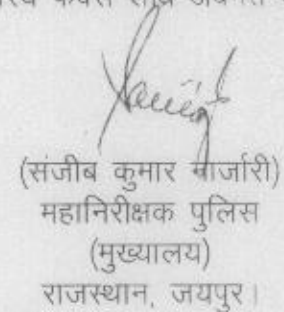 (संजीब कुमार नार्जारी)
महानिरीक्षक पुलिस
(मुख्यालय)
राजस्थान, जयपुर।